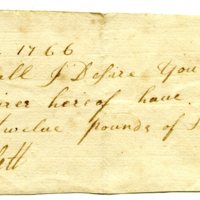 1766
all I Desire You
hereof have
twelve pounds of
ott